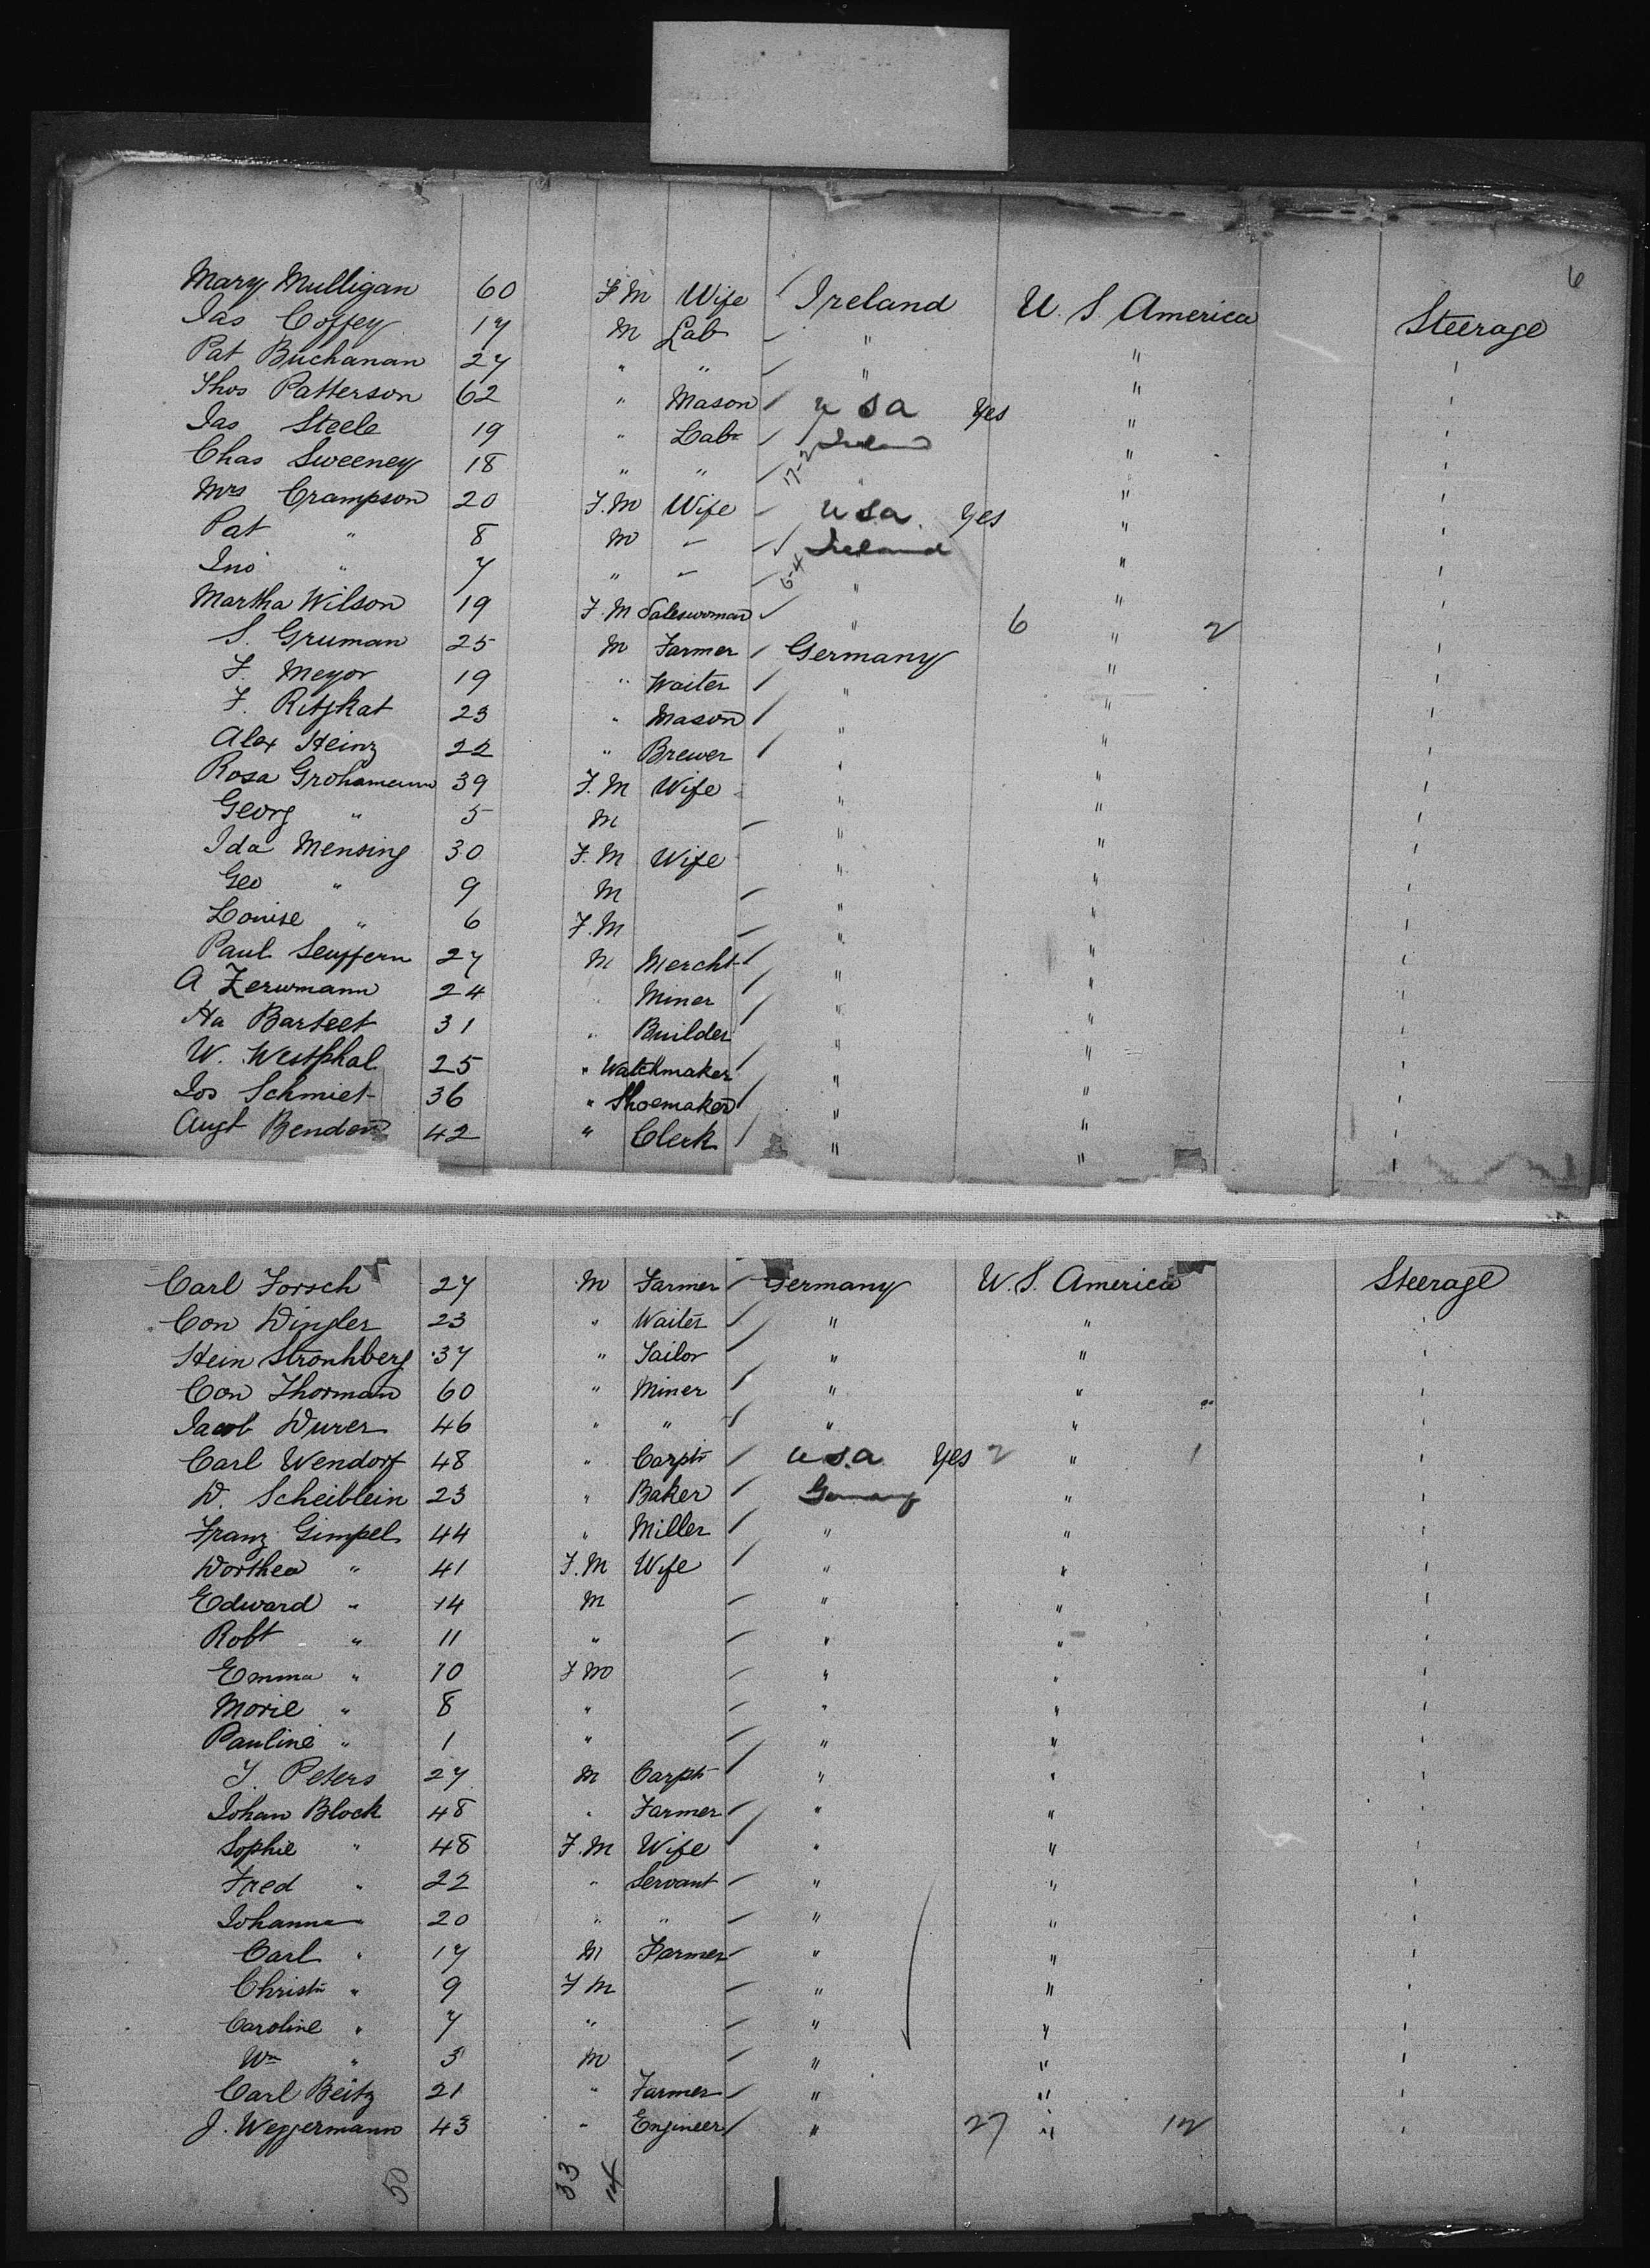 6
Mary Mulligan 60 F M Wife Ireland U. S America Steerage
Jas Coffey 17 M Lab " "
Pat Buchanan 27 " " " "
Thos Patterson 62 " Mason U S a Yes "
Jas Steele 19 " Labr Ireland "
Chas Sweeney 18 " " 17-2 " "
Mrs Crampson 20 F.M Wife U.S.a. Yes "
Pat " 8 M - Ireland "
Jno " 7 " - 6-4 " "
Martha Wilson 19 F.M Saleswoman " 6 " 2
S. Gruman 25 M Farmer Germany "
F. Meyor 19 " Waiter " "
F. Ritzkat 23 " Mason " "
Alex Heinz 22 " Brewer " "
Rosa Grohamann 39 F.M Wife " "
Georg " 5 M " "
Ida Mensing 30 F.M Wife " "
Geo " 9 M " "
Louise " 6 F.M " "
Paul Seuffern 27 M Mercht " "
A Zerwmann 24 " Miner " "
Ha Barteet 31 " Builder " "
W. Westphal 25 " Watchmaker " "
Jos Schmiet 36 " Shoemaker " "
Augt Bendon 42 " Clerk " "
Carl Forsch 27 M Farmer Germany U.S. America Steerage
Con Dingler 23 " Waiter " "
Hein Stronhberg 37 " Tailor " "
Con Thorman 60 " Miner " "
Jacob Durer 46 " " " "
Carl Wendorf 48 " Carptr U.S.a Yes 2 " 1
D. Scheiblein 23 " Baker Germany "
Franz Gimpel 44 " Miller " "
Dorthea " 41 F.M Wife " "
Edward " 14 M " "
Robt " 11 " " "
Emma " 10 F M " "
Marie " 8 " " "
Pauline " 1 " " "
J. Peters 27 M Carptr " "
Johan Block 48 " Farmer " "
Sophie " 48 F.M Wife " "
Fred " 22 " Servant " "
Johanna " 20 " " " "
Carl " 17 M Farmer " "
Christn " 9 F M " "
Caroline " 7 " " "
Wm " 3 M " "
Carl Beitz 21 " Farmer " "
J. Weggermann 43 " Engineer " 27 " 12
50 33 14